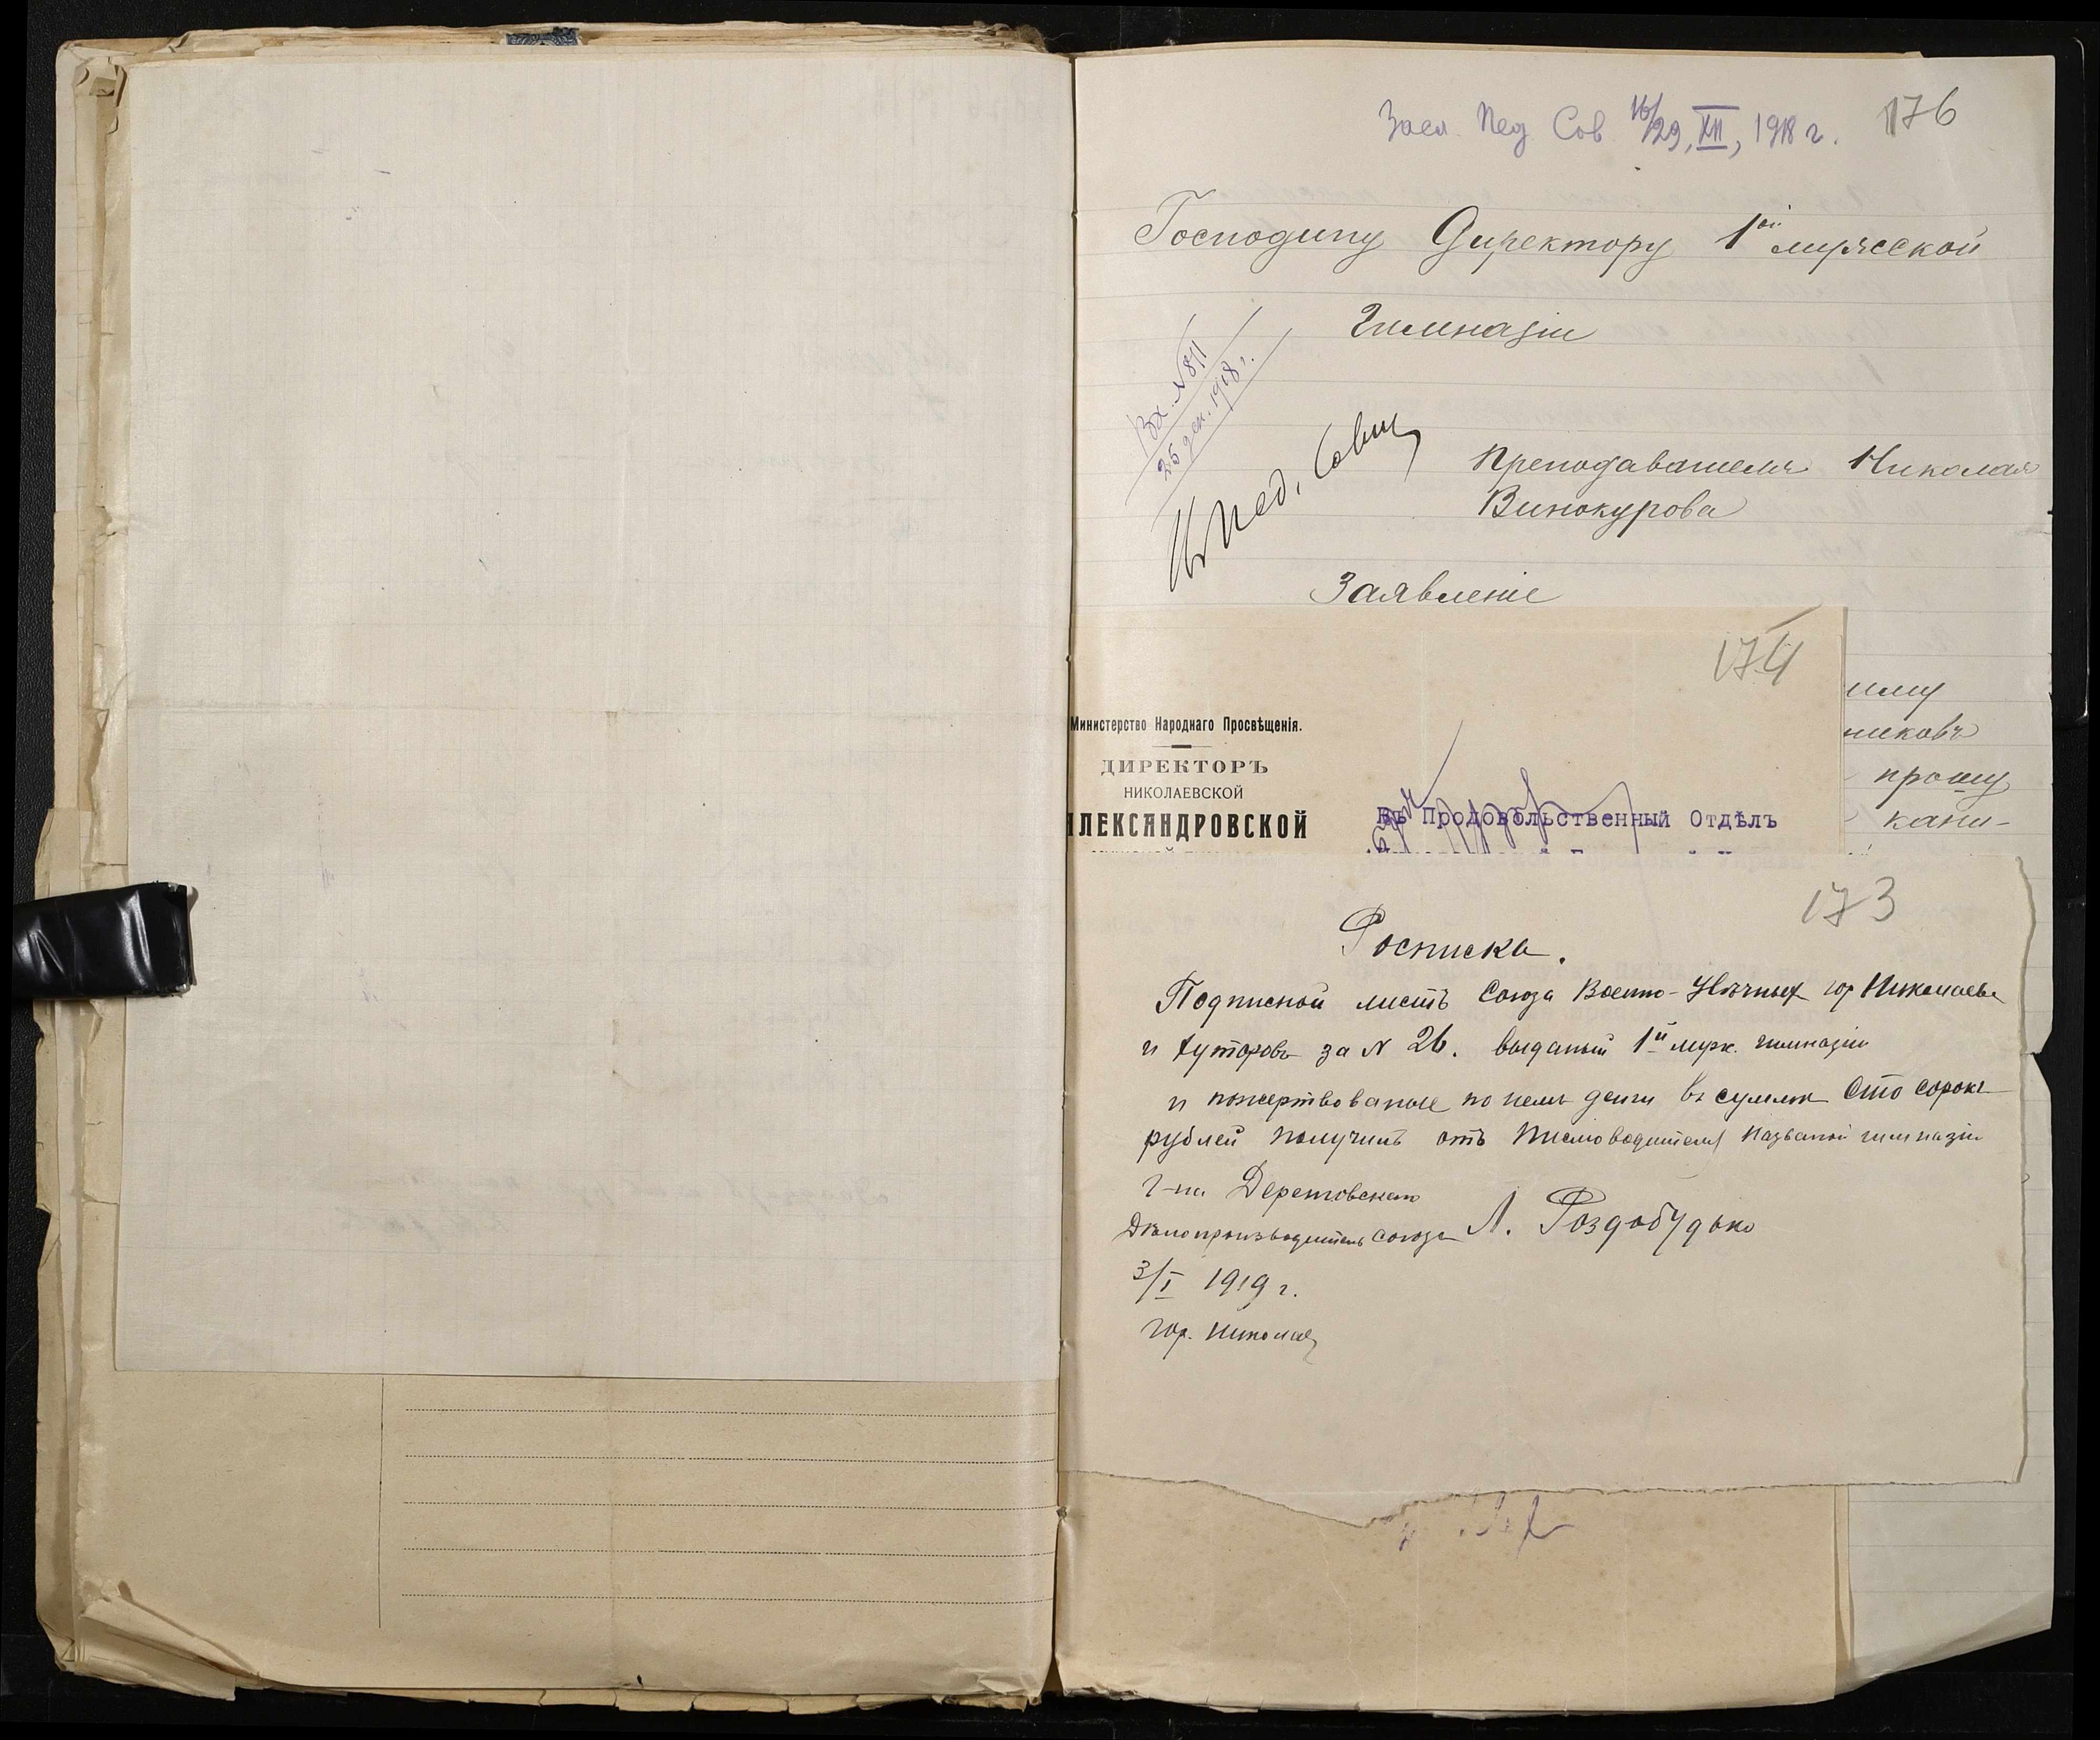 Засѣд. Пед. Сов. 16/29, XII, 1918 г.
176
Господину Директору 1ой мужской
Гимназіи
Вх. № 811
25 дек. 1918 г.
Пед. Совѣт
Преподавателя Николая
Винокурова
Заявленіе
174
ему
никовъ
прошу
кани-
Министерство Народнаго Просвѣщенія.
ДИРЕКТОРЪ
НИКОЛАЕВСКОЙ
АЛЕКСАНДРОВСКОЙ
Въ Продовольственный Отдѣлъ
173
Росписка.
Подписной листъ Союза Военно-Увѣчных гор Николаева
и Хуторовъ за N 26. выданый 1й муж. гимназіи
и пожертвованые по нем денги въ суммѣ Сто сорокъ
рублей получилъ отъ Писмоводителя названой гимназіи
Г-на
Дѣлопроизводитель Союза Л. Роздобудько
3/I 1919 г.
Гор. Николаев